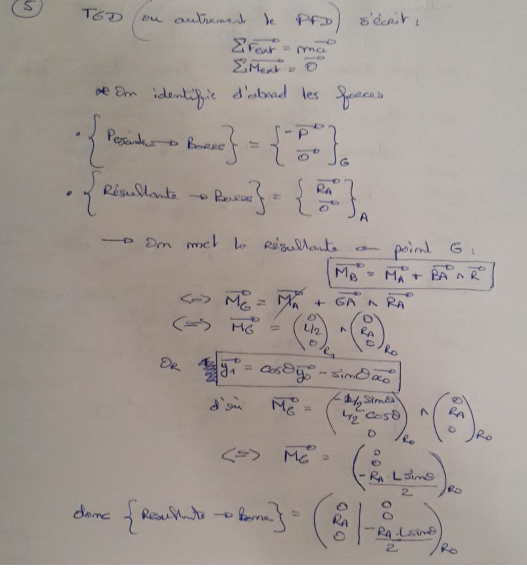 5
TGD (ou autrement le PFD) s'écrit :
ΣFext = ma
ΣMext = 0
* On identifie d'abord les forces
• {Pesanteur → Barre} = {-P 0}G
• {Résultante → Barre} = {RA 0}A
→ On met la résultante au point G :
MB = MA + BA ∧ R
<=> MG = MA + GA ∧ RA
<=> MG = (0 L/2 0)R1 ∧ (0 RA 0)R0
OR y1 = cosθ y0 - sinθ x0
d'où MG = (-L/2 sinθ L/2 cosθ 0)R0 ∧ (0 RA 0)R0
<=> MG = (0 0 -RA.L sinθ/2)R0
donc {Résultante → Barre} = (0 RA 0 | 0 0 -RA.L sinθ/2)R0